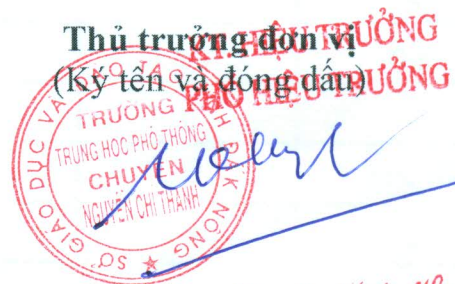 Thủ trưởng đơn vị
KT. HIỆU TRƯỞNG
(Ký tên và đóng dấu)
PHÓ HIỆU TRƯỞNG
SỞ GIÁO DỤC VÀ ĐÀO TẠO TỈNH ĐẮK NÔNG
TRƯỜNG
TRUNG HỌC PHỔ THÔNG
CHUYÊN
NGUYỄN CHÍ THANH